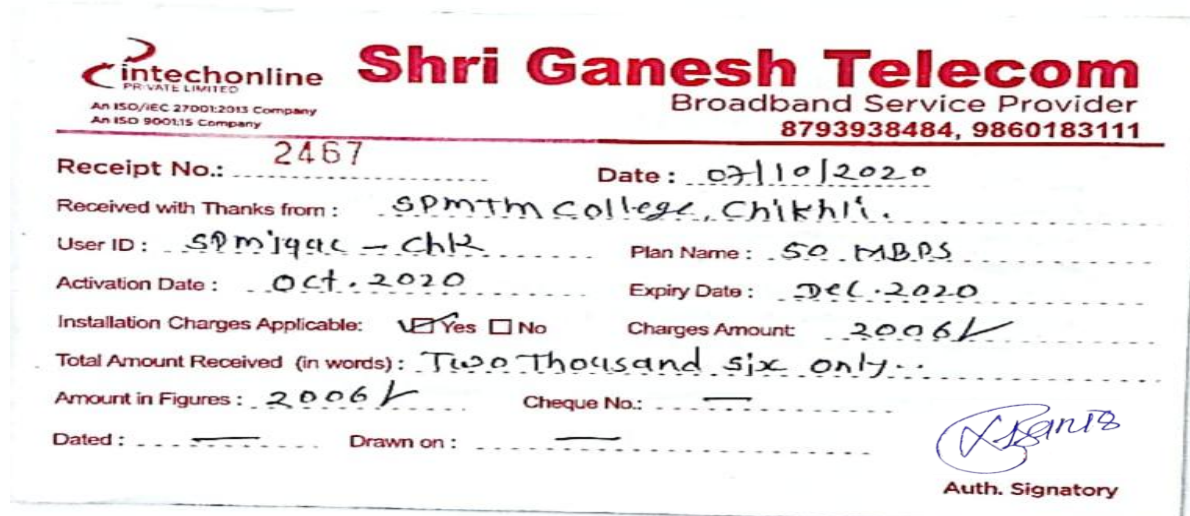 intechonline
PRIVATE LIMITED
An ISO/IEC 27001:2013 Company
An ISO 9001:15 Company
Shri Ganesh Telecom
Broadband Service Provider
8793938484, 9860183111
Receipt No.: 2467 Date : 07/10/2020
Received with Thanks from : SPMTM College, Chikhli.
User ID : - Chk Plan Name : 50 MBPS
Activation Date : Oct. 2020 Expiry Date : Dec. 2020
Installation Charges Applicable: Yes No Charges Amount: 2006/-
Total Amount Received (in words) : Two Thousand six only..
Amount in Figures : 2006/- Cheque No.: —
Dated : — Drawn on : —
Auth. Signatory